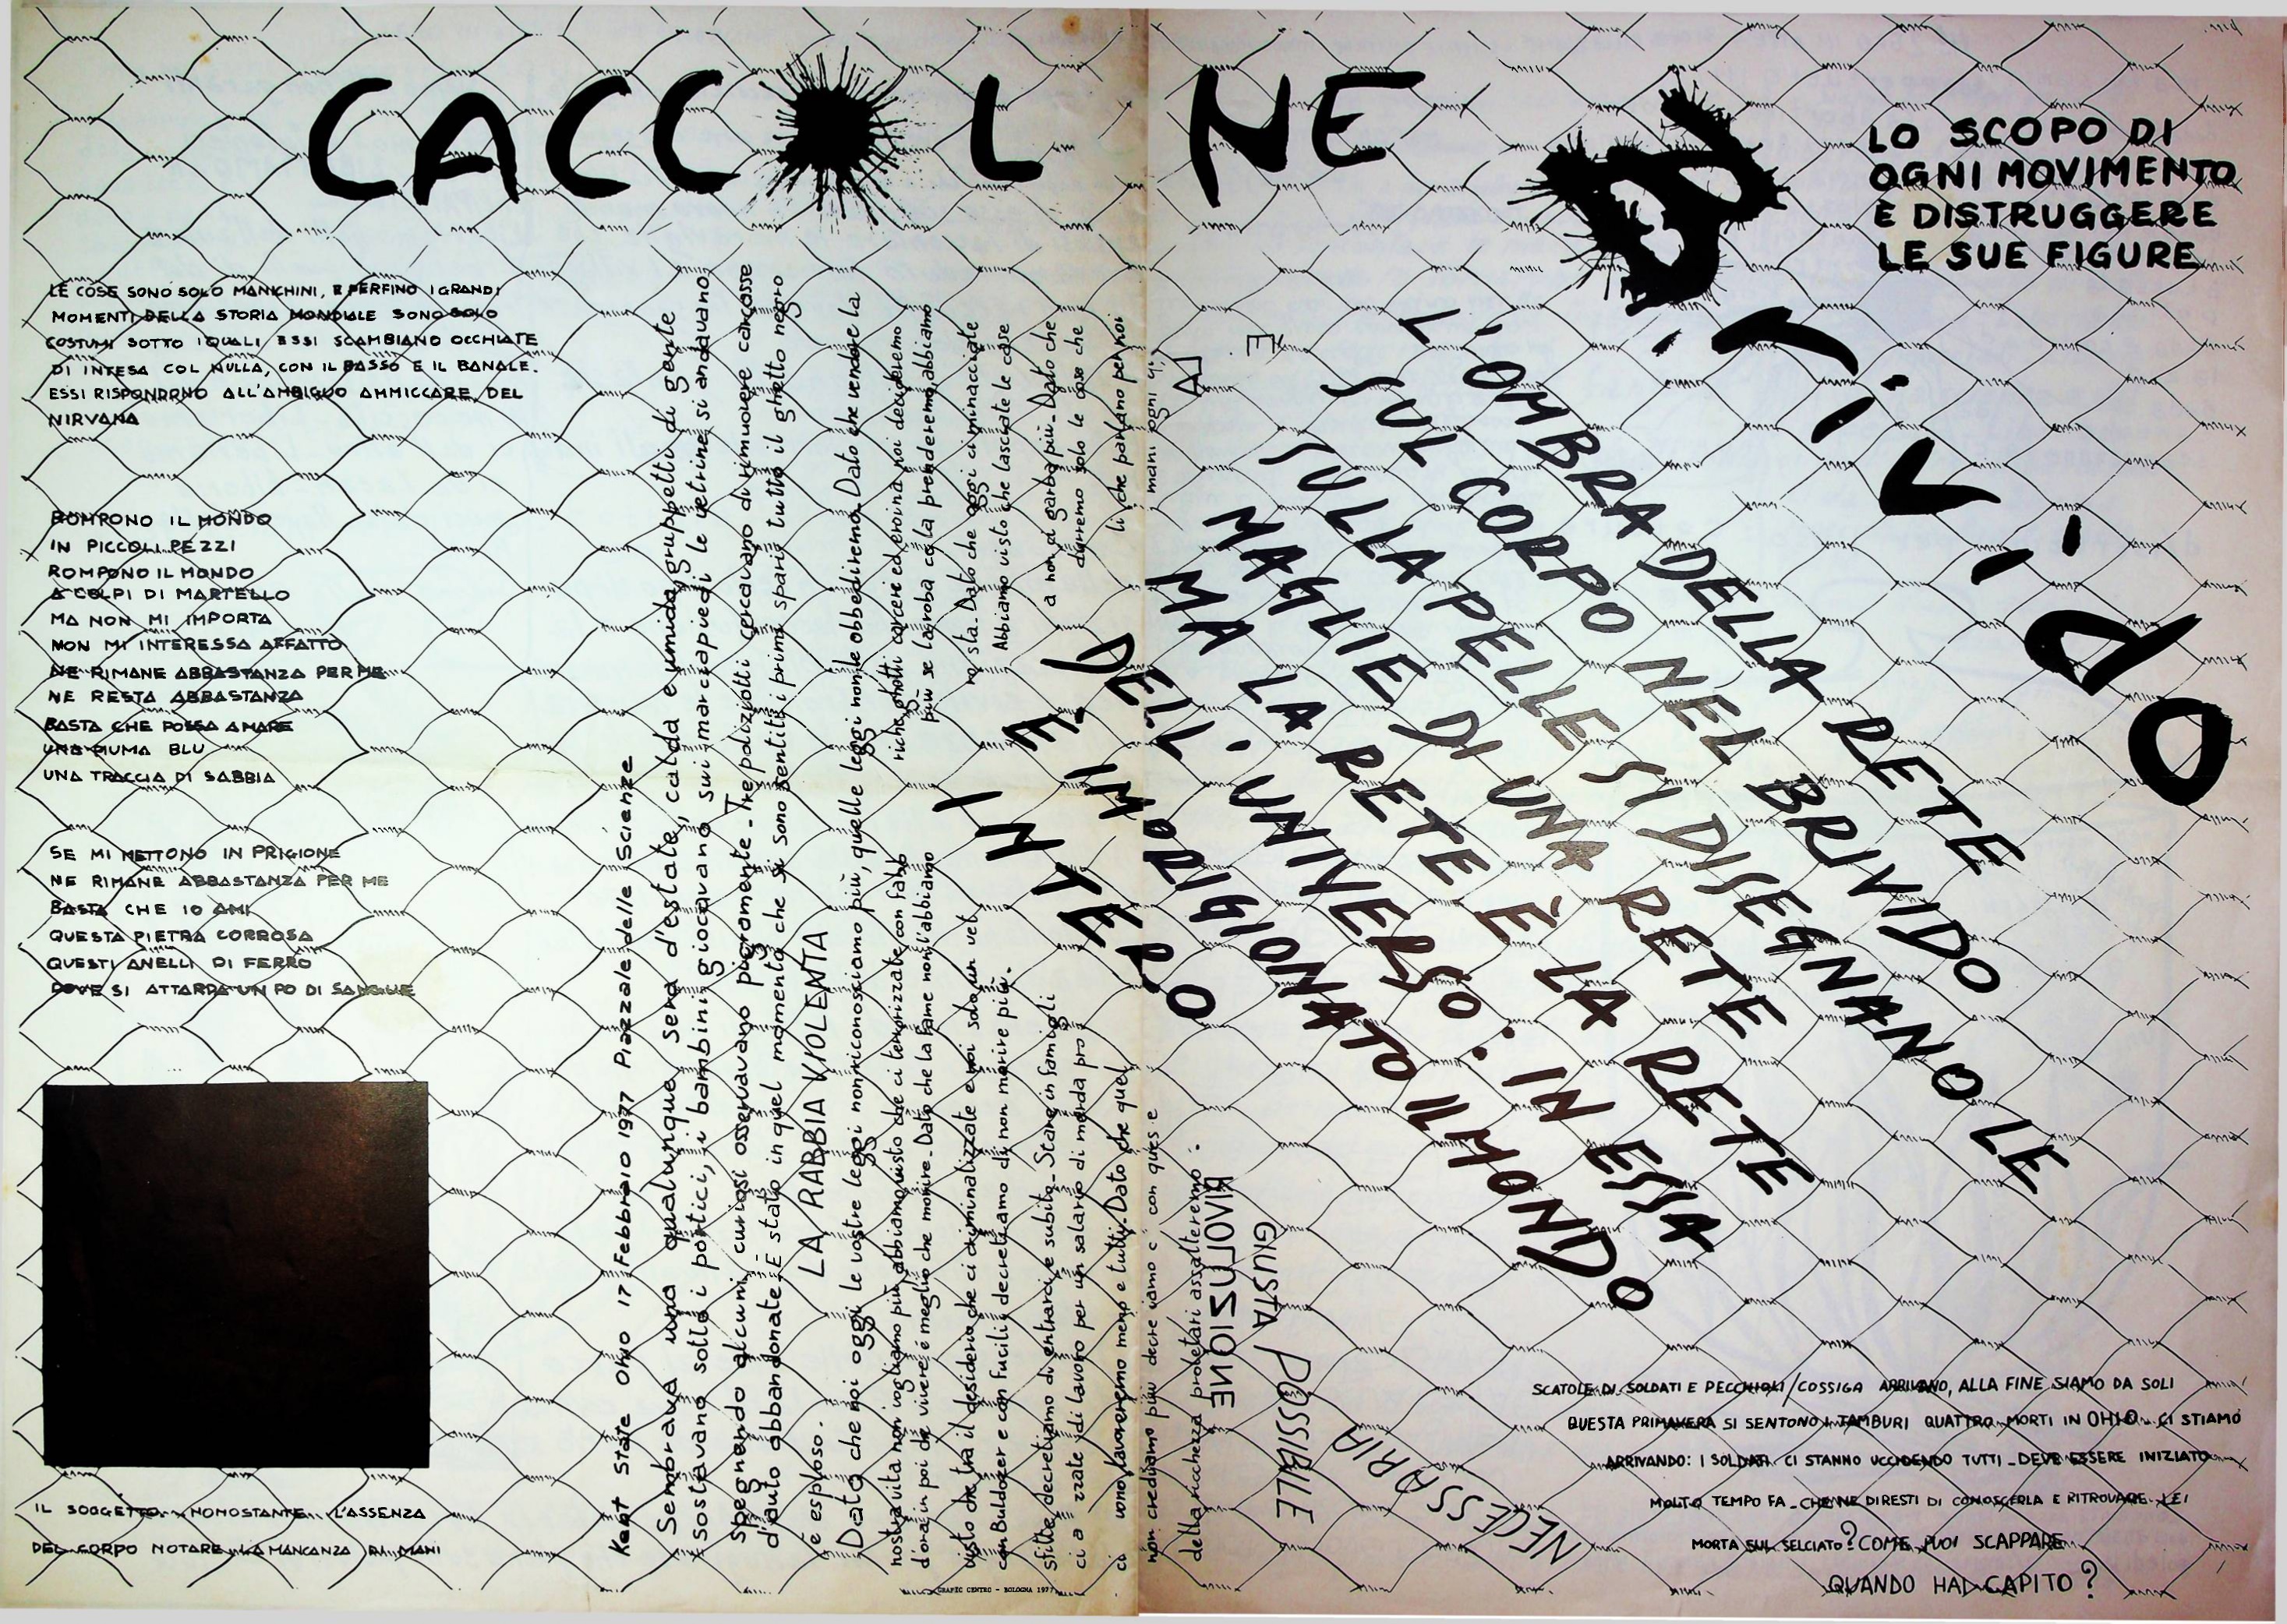 CACCOL NE
LO SCOPO DI
OGNI MOVIMENTO
È DISTRUGGERE
LE SUE FIGURE
B.r.i.v.i.do
LE COSE SONO SOLO MANICHINI, E PERFINO I GRANDI
MOMENTI DELLA STORIA MONDIALE SONO SOLO
COSTUMI SOTTO I QUALI ESSI SCAMBIANO OCCHIATE
DI INTESA COL NULLA, CON IL BASSO E IL BANALE.
ESSI RISPONDONO ALL'AMBIGUO AMMICCARE DEL
NIRVANA
ROMPONO IL MONDO
IN PICCOLI PEZZI
ROMPONO IL MONDO
A COLPI DI MARTELLO
MA NON MI IMPORTA
NON MI INTERESSA AFFATTO
NE RIMANE ABBASTANZA PER ME
NE RESTA ABBASTANZA
BASTA CHE POSSA AMARE
UNA PIUMA BLU
UNA TRACCIA DI SABBIA
SE MI METTONO IN PRIGIONE
NE RIMANE ABBASTANZA PER ME
BASTA CHE IO AMI
QUESTA PIETRA CORROSA
QUESTI ANELLI DI FERRO
DOVE SI ATTARDA UN PO DI SANGUE
IL SOGGETTO NONOSTANTE L'ASSENZA
DEL CORPO NOTARE LA MANCANZA DI MANI
Kent State Ohio 17 Febbraio 1977 Piazzale delle Scienze
Sembrava una qualunque sera d'estate, calda e umida, gruppetti di gente
sostavano sotto i portici, i bambini giocavano sui marciapiedi le vetrine si andavano
spegnendo alcuni curiosi osservavano pigramente - Tre poliziotti cercavano di rimuovere carcasse
d'auto abbandonate. È stato in quel momento che si sono sentiti i primi spari: tutto il ghetto negro
è esploso. LA RABBIA VIOLENTA
Dato che noi oggi le vostre leggi non riconosciamo più, quelle leggi non le obbediremo. Dato che vendete la
nostra vita non vogliamo più abbiamo visto che ci terrorizzate con fabb riche ghetti carcere ed eroina noi decideremo
d'ora in poi che vivere è meglio che morire. Dato che la fame non l'abbiamo più se la roba ce la prenderemo, abbiamo
visto che tra il desiderio che ci criminalizzate e noi solo un vet ro sta. Dato che oggi ci minacciate
con Buldozer e con fucili, decretiamo di non morire più. Abbiamo visto che lasciate le case
sfitte decretiamo di entrarci e subito. Stare in famigli a non ci garba più. Dato che
ci a zzate di lavoro per un salario di merda pro durremo solo le cose che
ci vono lavoreremo meno e tutti. Dato che quel li che parlano per noi
non crediamo più decre iamo c con ques e mani ogni gi
della ricchezza proletari assalteremo.
RIVOLUZIONE
GIUSTA POSSIBILE
NECESSARIA
L'OMBRA DELLA RETE
SUL CORPO NEL BRIVIDO
SULLA PELLE SI DISEGNANO LE
MAGLIE DI UNA RETE
MA LA RETE È LA RETE
DELL'UNIVERSO: IN ESSA
È IMPRIGIONATO IL MONDO
INTERO
SCATOLE DI SOLDATI E PECCHIOLI/COSSIGA ARRIVANO, ALLA FINE SIAMO DA SOLI
QUESTA PRIMAVERA SI SENTONO I TAMBURI QUATTRO MORTI IN OHIO - CI STIAMO
ARRIVANDO: I SOLDATI CI STANNO UCCIDENDO TUTTI - DEVE ESSERE INIZIATO
MOLTO TEMPO FA - CHE NE DIRESTI DI CONOSCERLA E RITROVARE LEI
MORTA SUL SELCIATO? COME PUOI SCAPPARE
QUANDO HAI CAPITO?
GRAFIC CENTRO - BOLOGNA 1977